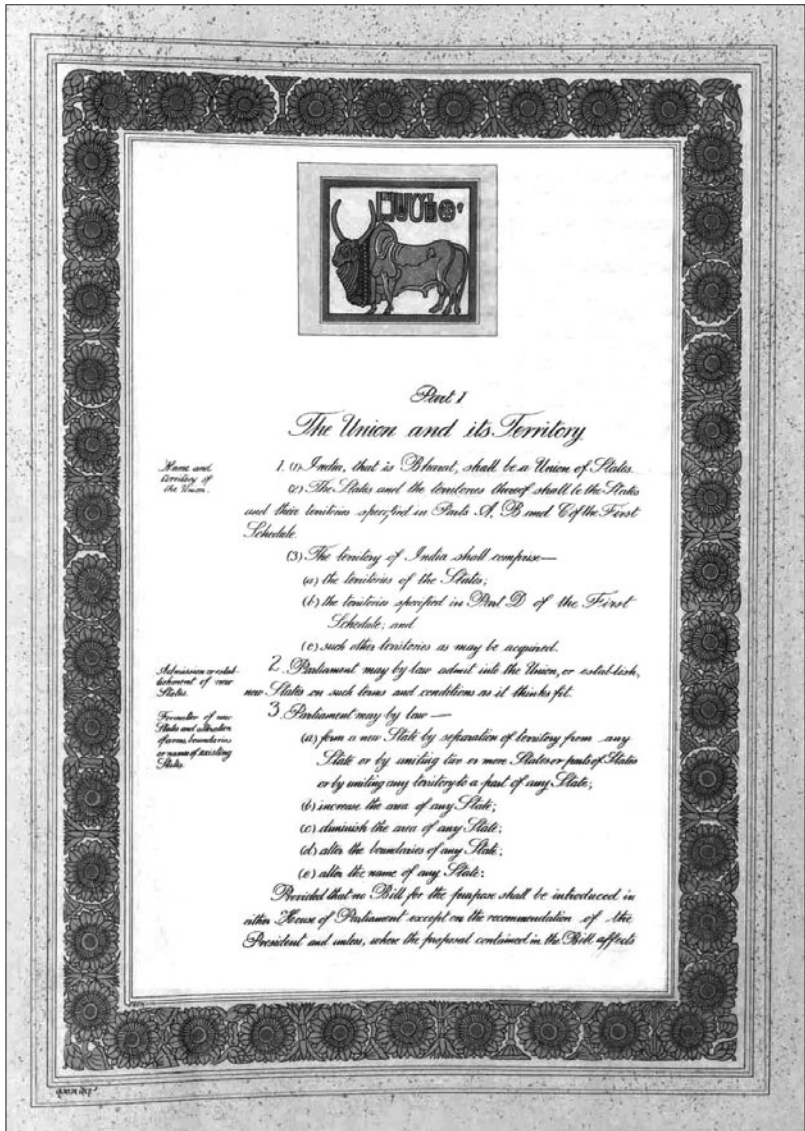 Part I
The Union and its Territory
Name and
territory of
the Union.
1. (1) India, that is Bharat, shall be a Union of States.
(2) The States and the territories thereof shall be the States
and their territories specified in Parts A, B and C of the First
Schedule.
(3) The territory of India shall comprise—
(a) the territories of the States;
(b) the territories specified in Part D of the First
Schedule; and
(c) such other territories as may be acquired.
Admission or estab-
lishment of new
States.
2. Parliament may by law admit into the Union, or establish,
new States on such terms and conditions as it thinks fit.
Formation of new
States and alteration
of areas, boundaries
or names of existing
States.
3. Parliament may by law—
(a) form a new State by separation of territory from any
State or by uniting two or more States or parts of States
or by uniting any territory to a part of any State;
(b) increase the area of any State;
(c) diminish the area of any State;
(d) alter the boundaries of any State;
(e) alter the name of any State:
Provided that no Bill for the purpose shall be introduced in
either House of Parliament except on the recommendation of the
President and unless, where the proposal contained in the Bill affects